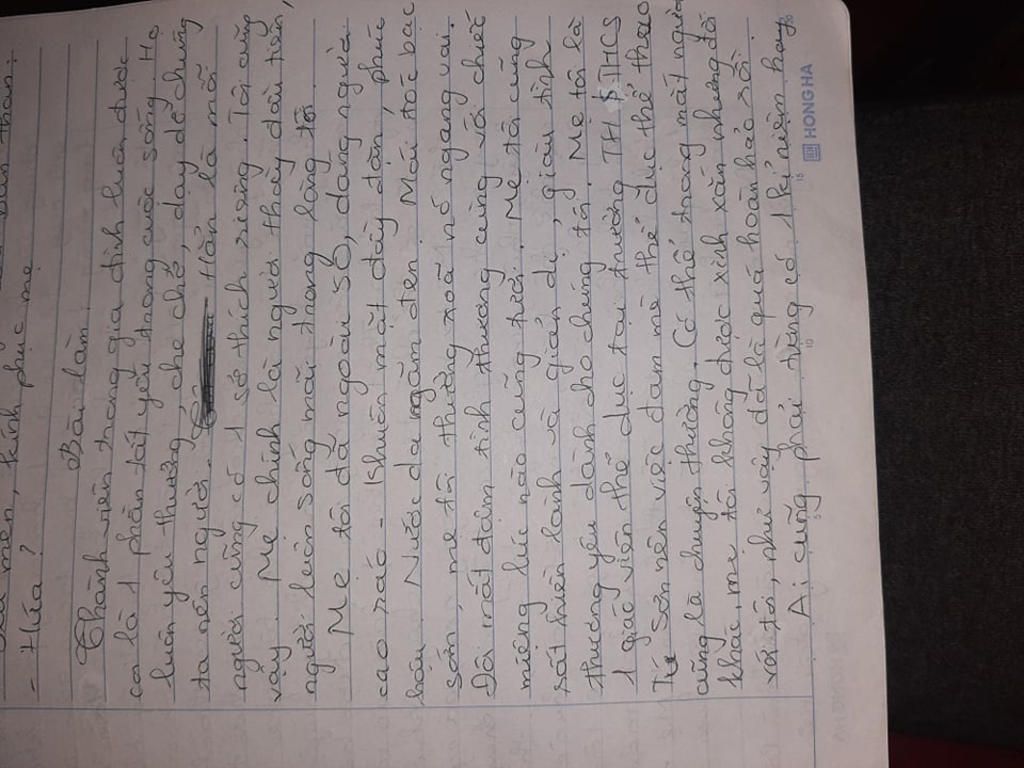 mến, kính phục mẹ
- Hứa?
Bài làm:
Thành viên trong gia đình luôn được
coi là 1 phần tất yếu trong cuộc sống. Họ
luôn yêu thương, che chở, dạy dỗ chúng
ta nên người. Hẳn là mỗi
người cũng có 1 sở thích riêng. Tôi cũng
vậy. Mẹ chính là người thầy đầu tiên,
người luôn sống mãi trong lòng tôi.
Mẹ tôi đã ngoài 50, dáng người
cao ráo. Khuôn mặt đầy đặn, phúc
hậu. Nước da ngăm đen. Mái tóc bạc
sớm, mẹ tôi thường xoã nó ngang vai.
Đôi mắt đằm tình thương cùng với chiếc
miệng lúc nào cũng tươi. Mẹ tôi cũng
rất hiền lành và giản dị, giàu tình
thương yêu dành cho chúng tôi. Mẹ tôi là
1 giáo viên thể dục tại trường TH & THCS
Sơn nên việc đam mê thể dục thể thao
cũng là chuyện thường. Có thể trong mắt người
khác, mẹ tôi không được xinh xắn nhưng đối
với tôi, như vậy đã là quá hoàn hảo rồi.
Ai cũng phải từng có 1 kỉ niệm hay
HONG HA
5
10
15
20